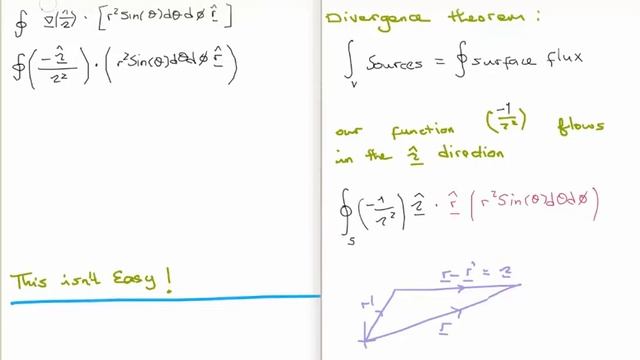 ∮ ∇(1/𝓇) · [r² Sin(θ)dθdϕ r̂]
∮ (-𝓇̂/𝓇²) · (r² Sin(θ)dθdϕ r̂)
This isn't Easy!
Divergence theorem:
∫_v Sources = ∮ surface flux
our function (-1/𝓇²) flows
in the 𝓇̂ direction
∮_S (-1/𝓇²) 𝓇̂ · r̂ (r² Sin(θ)dθdϕ)
r - r' = 𝓇
r'
r